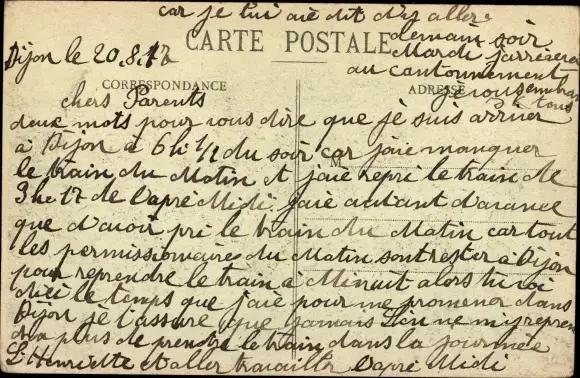 car je lui aie dit d'y aller
demain soir
Mardi j'arriverai
au cantonnement
je vous embrasse
tous
Dijon le 20.8.17
CARTE POSTALE
CORRESPONDANCE
ADRESSE
chers Parents
deux mots pour vous dire que je suis arriver
à Dijon à 6h 1/2 du soir car jaie manquer
M
le train du Matin et jaie repri le train de
3he 17 de l'apré Midi jaie autant d'avance
que d'avoir pri le train du Matin car tout
les permissionaires du Matin sont rester à Dijon
pour reprendre le train à Minuit alors tu voi
dici le temps que jaie pour me promener dans
Dijon je t'assure que jamais l'on ne m'y repren
dra plus de prendre le train dans la journée
Henriette et aller travailler l'apré Midi